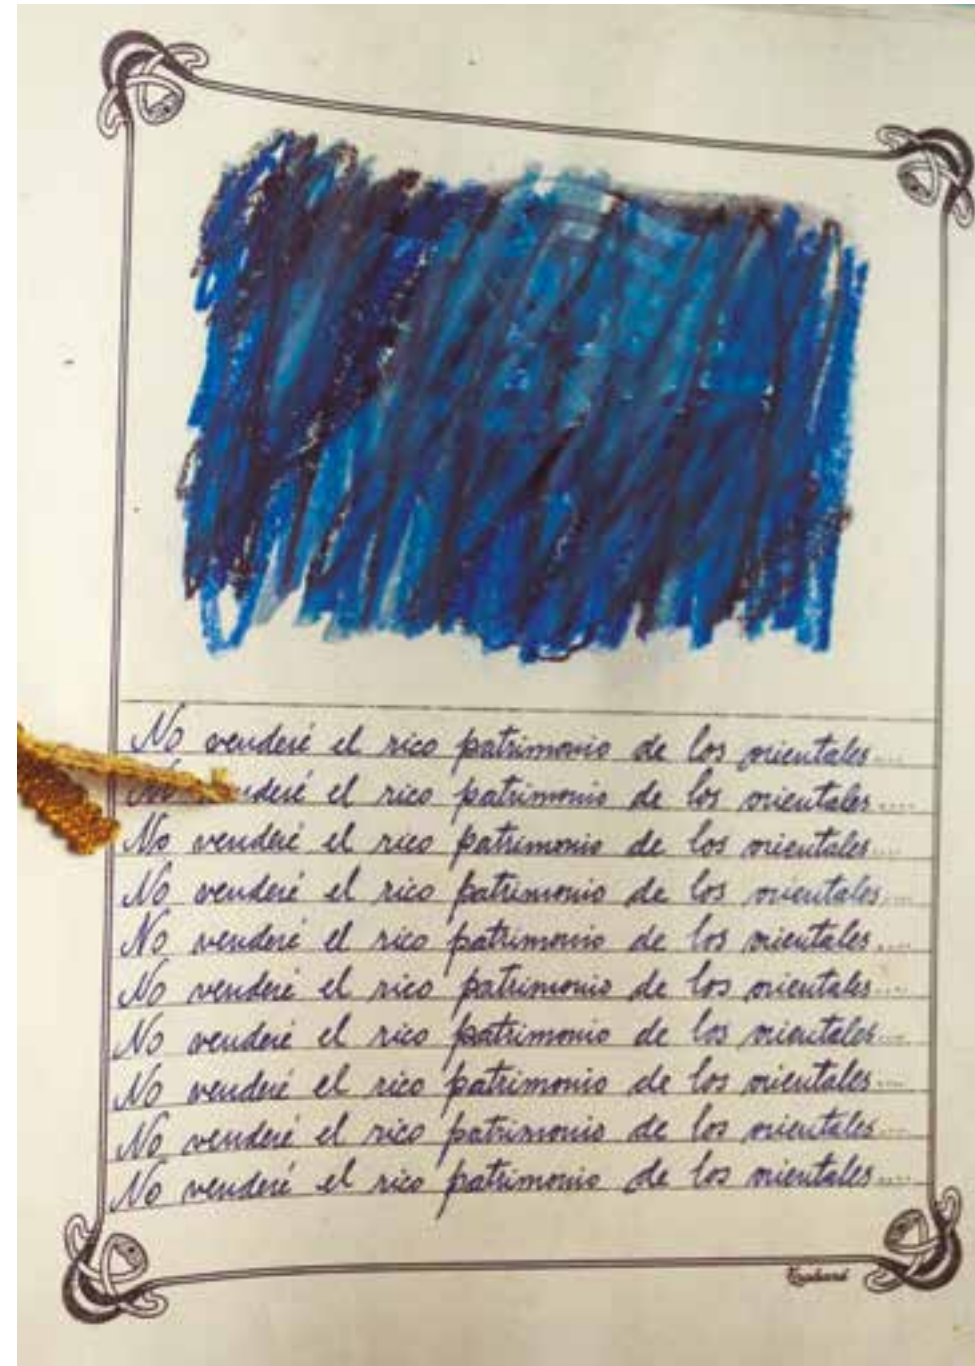 No venderé el rico patrimonio de los orientales....
No venderé el rico patrimonio de los orientales....
No venderé el rico patrimonio de los orientales....
No venderé el rico patrimonio de los orientales....
No venderé el rico patrimonio de los orientales....
No venderé el rico patrimonio de los orientales....
No venderé el rico patrimonio de los orientales....
No venderé el rico patrimonio de los orientales....
No venderé el rico patrimonio de los orientales....
No venderé el rico patrimonio de los orientales....